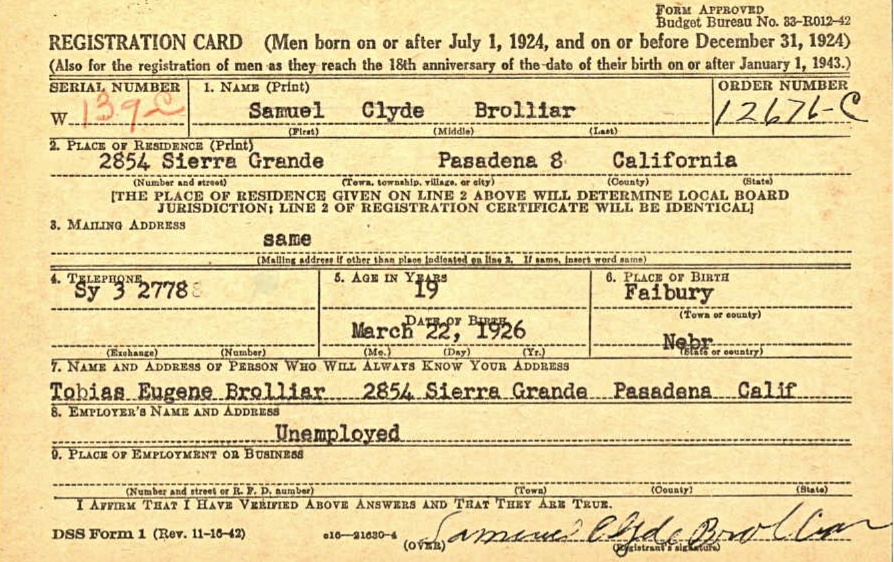 FORM APPROVED
Budget Bureau No. 33-R012-42
REGISTRATION CARD (Men born on or after July 1, 1924, and on or before December 31, 1924)
(Also for the registration of men as they reach the 18th anniversary of the date of their birth on or after January 1, 1943.)
SERIAL NUMBER 1. NAME (Print) ORDER NUMBER
W 139-C Samuel Clyde Brolliar 12676-C
(First) (Middle) (Last)
2. PLACE OF RESIDENCE (Print)
2854 Sierra Grande Pasadena 8 California
(Number and street) (Town, township, village, or city) (County) (State)
[THE PLACE OF RESIDENCE GIVEN ON LINE 2 ABOVE WILL DETERMINE LOCAL BOARD
JURISDICTION; LINE 2 OF REGISTRATION CERTIFICATE WILL BE IDENTICAL]
3. MAILING ADDRESS
same
(Mailing address if other than place indicated on line 2. If same, insert word same)
4. TELEPHONE 5. AGE IN YEARS 6. PLACE OF BIRTH
Sy 3 2778 19 Faibury
(Town or county)
DATE OF BIRTH
March 22, 1926 Nebr
(Exchange) (Number) (Mo.) (Day) (Yr.) (State or country)
7. NAME AND ADDRESS OF PERSON WHO WILL ALWAYS KNOW YOUR ADDRESS
Tobias Eugene Brolliar 2854 Sierra Grande Pasadena Calif
8. EMPLOYER'S NAME AND ADDRESS
Unemployed
9. PLACE OF EMPLOYMENT OR BUSINESS
(Number and street or R. F. D. number) (Town) (County) (State)
I AFFIRM THAT I HAVE VERIFIED ABOVE ANSWERS AND THAT THEY ARE TRUE.
DSS Form 1 (Rev. 11-16-42) c16—21630-4 (OVER) Samuel Clyde Brolliar
(Registrant's signature)